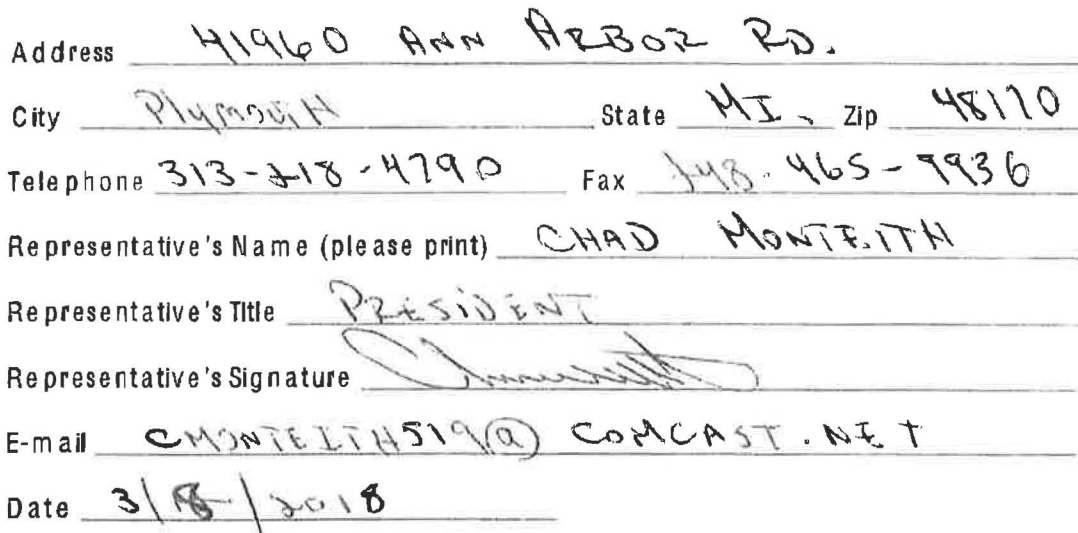 Address 41960 ANN ARBOR RD.
City Plymouth State MI. Zip 48170
Telephone 313-218-4790 Fax 248-465-9936
Representative's Name (please print) CHAD MONTEITH
Representative's Title PRESIDENT
Representative's Signature
E-mail CMONTEITH519@COMCAST.NET
Date 3/8/2018